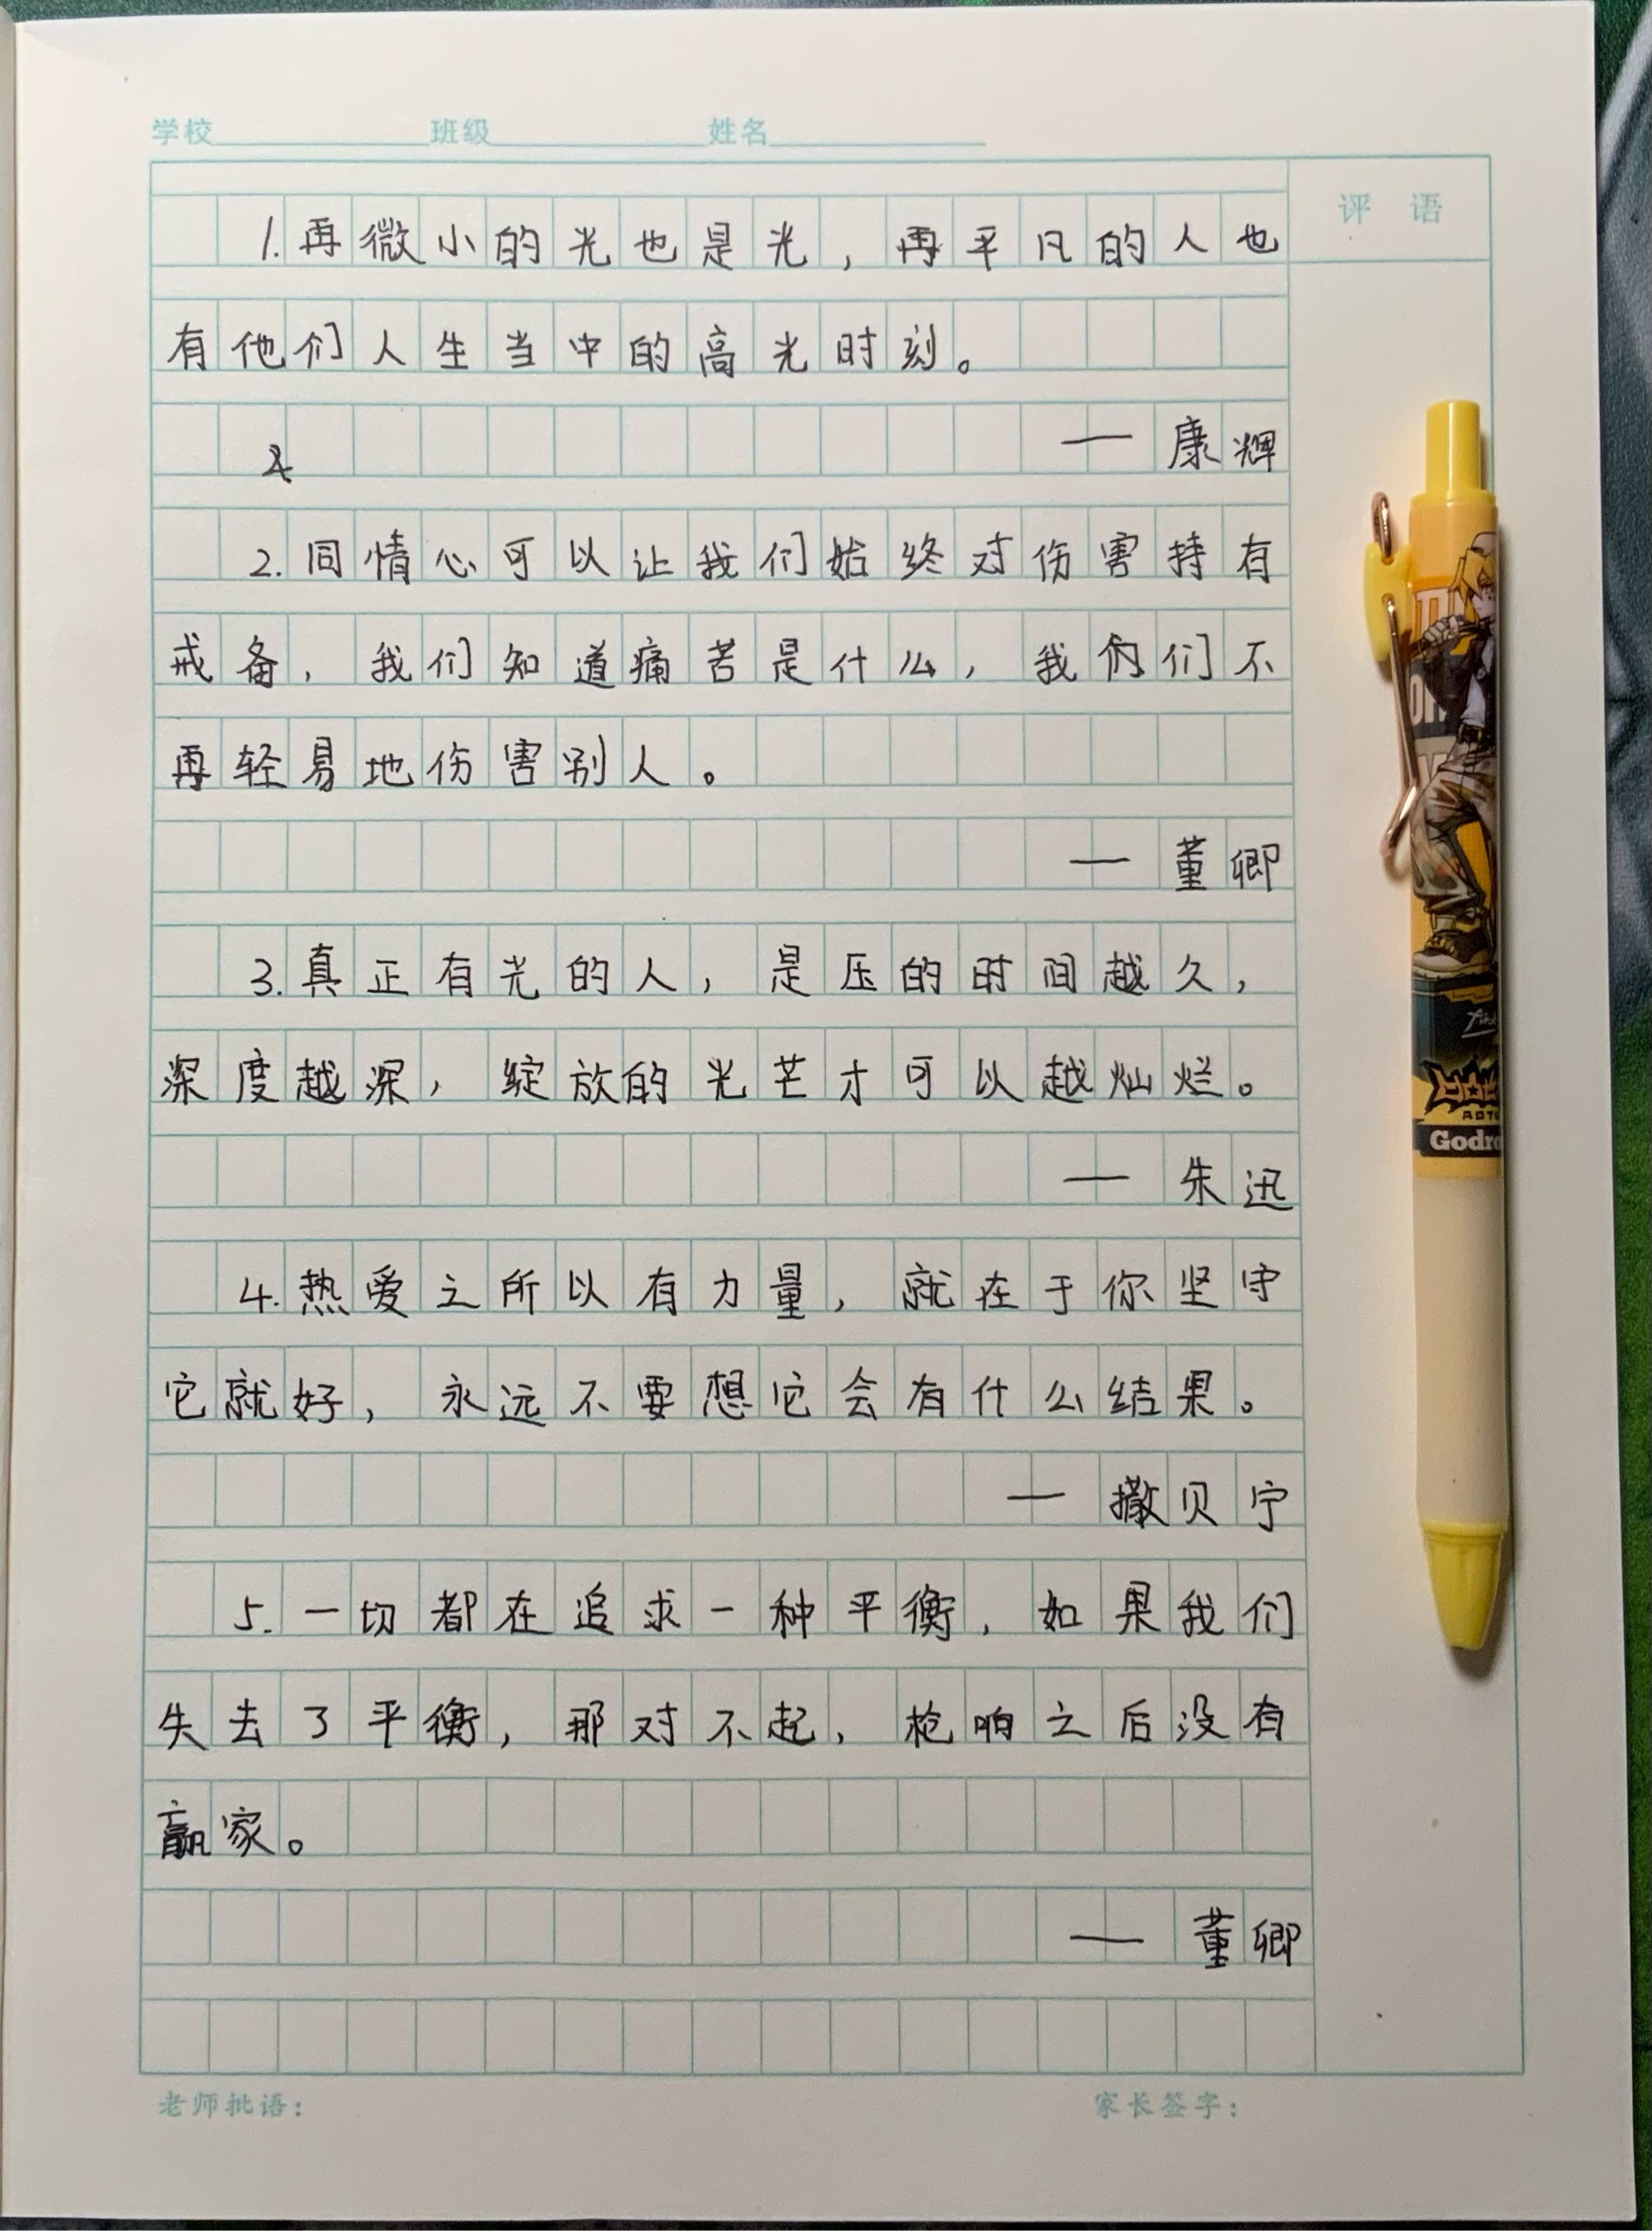 学校 班级 姓名
评 语
1.再微小的光也是光，再平凡的人也
有他们人生当中的高光时刻。
— 康辉
2.同情心可以让我们始终对伤害持有
戒备，我们知道痛苦是什么，我们们不
再轻易地伤害别人。
— 董卿
3.真正有光的人，是压的时间越久，
深度越深，绽放的光芒才可以越灿烂。
— 朱迅
4.热爱之所以有力量，就在于你坚守
它就好，永远不要想它会有什么结果。
— 撒贝宁
5.一切都在追求一种平衡，如果我们
失去了平衡，那对不起，枪响之后没有
赢家。
— 董卿
老师批语： 家长签字：
Godro